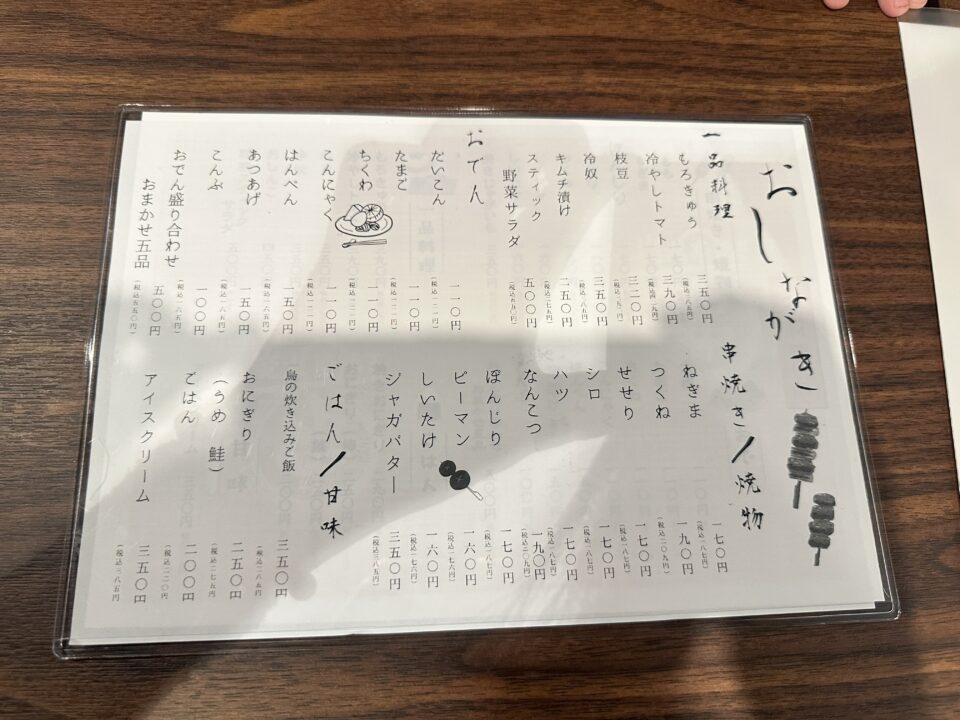 おしながき
一品料理
もろきゅう 三五〇円
(税込三八五円)
冷やしトマト 三九〇円
(税込四二九円)
枝豆 三二〇円
冷奴 三五〇円
(税込三八五円)
キムチ漬け 二五〇円
(税込二七五円)
スティック
野菜サラダ 五〇〇円
(税込五五〇円)
おでん
だいこん 一一〇円
(税込一二一円)
たまご 一一〇円
(税込一二一円)
ちくわ 一一〇円
(税込一二一円)
こんにゃく 一一〇円
(税込一二一円)
はんぺん 一五〇円
(税込一六五円)
あつあげ 一五〇円
(税込一六五円)
こんぶ 一〇〇円
おでん盛り合わせ
おまかせ五品 五〇〇円
(税込五五〇円)
串焼き/焼物
ねぎま 一七〇円
(税込一八七円)
つくね 一九〇円
(税込二〇九円)
せせり 一七〇円
(税込一八七円)
シロ 一七〇円
(税込一八七円)
ハツ 一七〇円
(税込一八七円)
なんこつ 一九〇円
(税込二〇九円)
ぼんじり 一七〇円
(税込一八七円)
ピーマン 一六〇円
(税込一七六円)
しいたけ 一六〇円
(税込一七六円)
ジャガバター 三五〇円
(税込三八五円)
ごはん/甘味
鳥の炊き込みご飯 三五〇円
(税込三八五円)
おにぎり 二五〇円
(うめ 鮭)
(税込二七五円)
ごはん 二〇〇円
(税込二二〇円)
アイスクリーム 三五〇円
(税込三八五円)